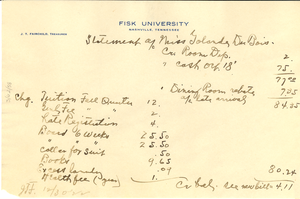 FISK UNIVERSITY
NASHVILLE, TENNESSEE
J. F. FAIRCHILD, TREASURER
Statement of Miss Yolande Du Bois
Cr Room Dep. 2.
" Cash Oct 18 75.
77.00
" Dining Room rebate
late arrival 7.05
84.05
Chg. Tuition Fall Quarter 12.
Fee "
Late Registration 4.
Board 6 Weeks 25.50
" 25.50
for Suit .50
Books 9.65
Excess Laundry .09
Health fee (Year) 1.
80.24
Cr bal. see new bill - 4.11